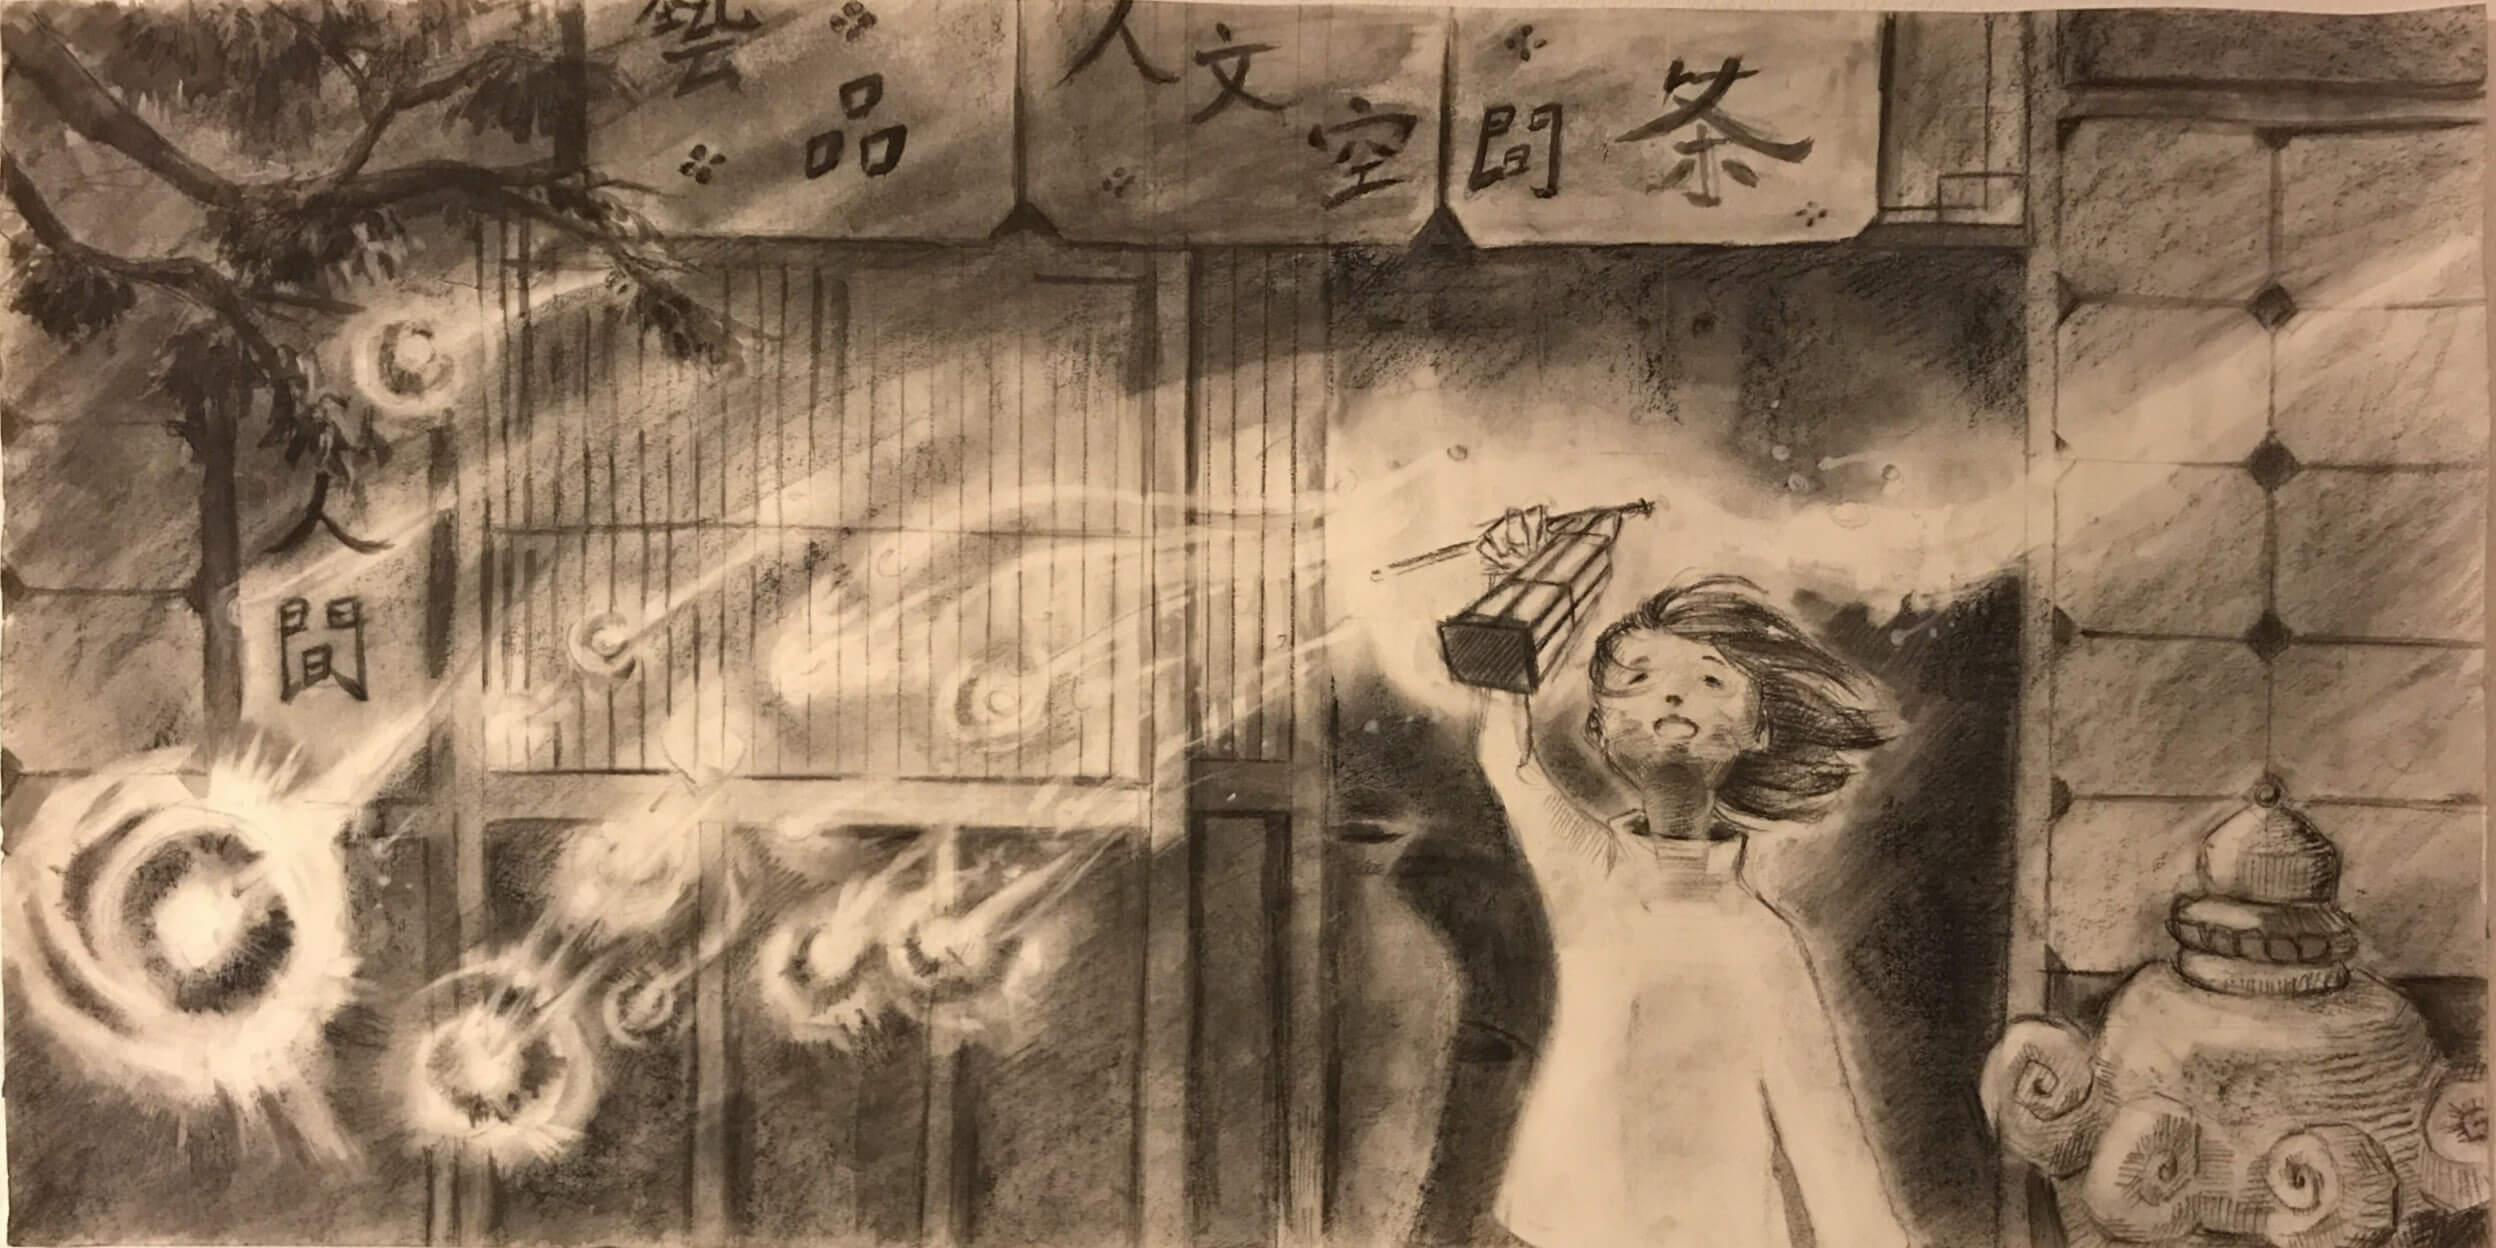 藝品 人文空間 茶
人間